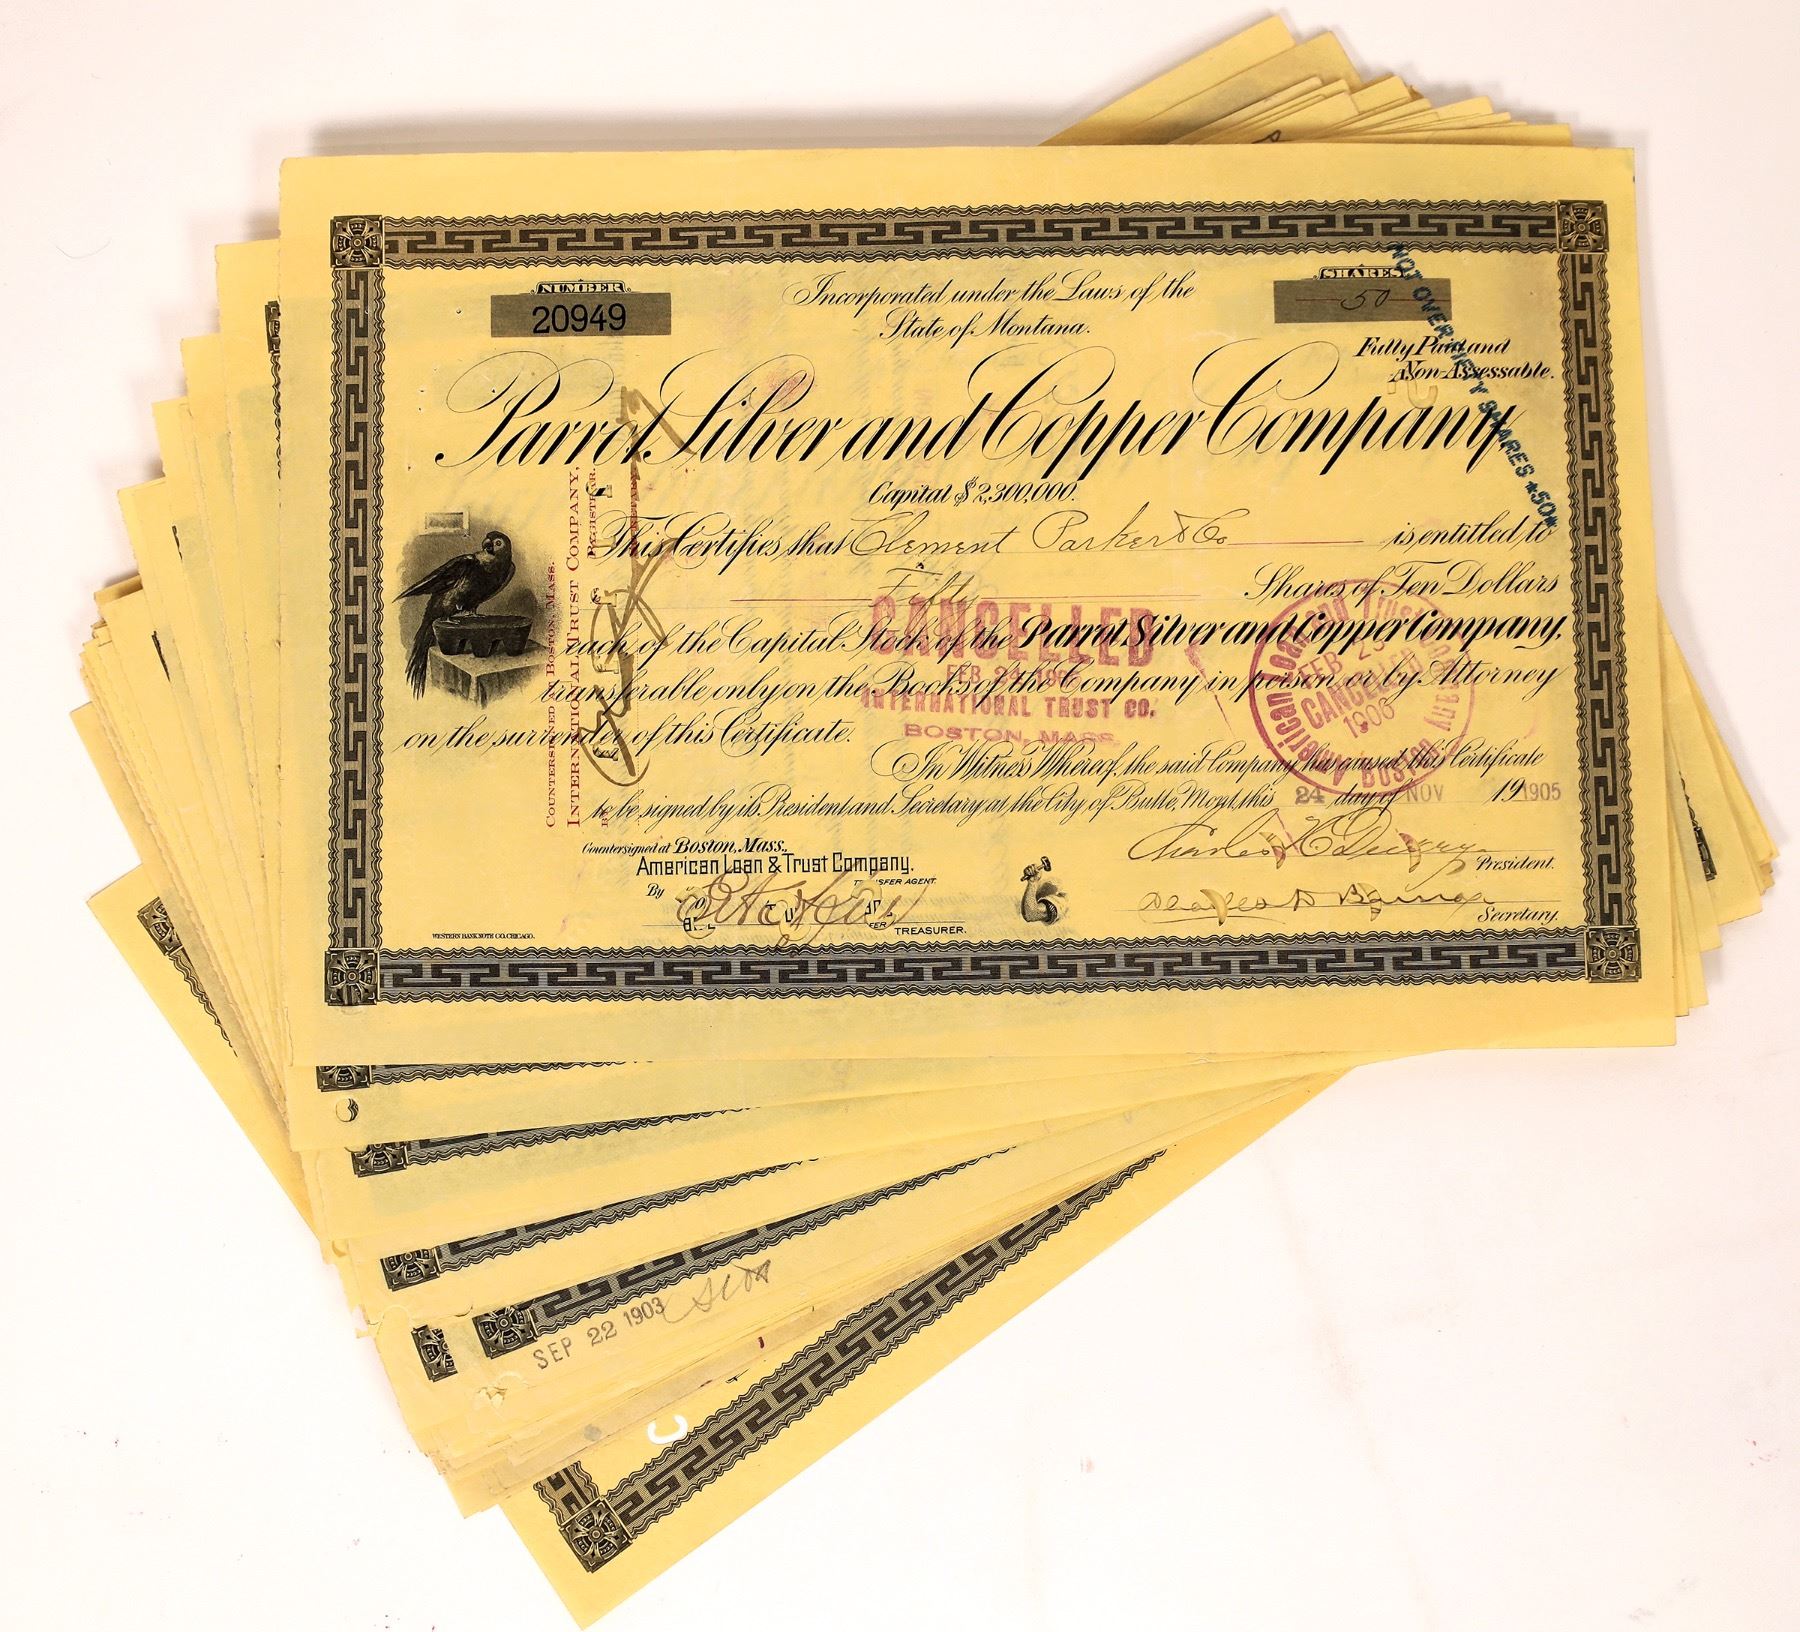 NUMBER
20949
Incorporated under the Laws of the
State of Montana.
SHARES
50
NOT OVER FIFTY SHARES *50*
Fully Paid and
Non-Assessable.
Parrot Silver and Copper Company
Capital $2,300,000.
This Certifies that Clement Parker & Co is entitled to
Fifty Shares of Ten Dollars
each of the Capital Stock of the Parrot Silver and Copper Company,
transferable only on the Books of the Company in person or by Attorney
on the surrender of this Certificate.
In Witness Whereof, the said Company has caused this Certificate
to be signed by its President and Secretary at the City of Butte, Mont, this 24 day of NOV 19 1905
COUNTERSIGNED AT BOSTON, MASS.
INTERNATIONAL TRUST COMPANY,
REGISTRAR.
CANCELLED
FEB 24
INTERNATIONAL TRUST CO.
BOSTON, MASS.
American Loan and Trust Company
FEB 23
CANCELLED
1906
BOSTON
Countersigned at Boston, Mass.,
American Loan & Trust Company,
TRANSFER AGENT.
By
TREASURER.
President.
Secretary.
WESTERN BANK NOTE CO. CHICAGO.
SEP 22 1903